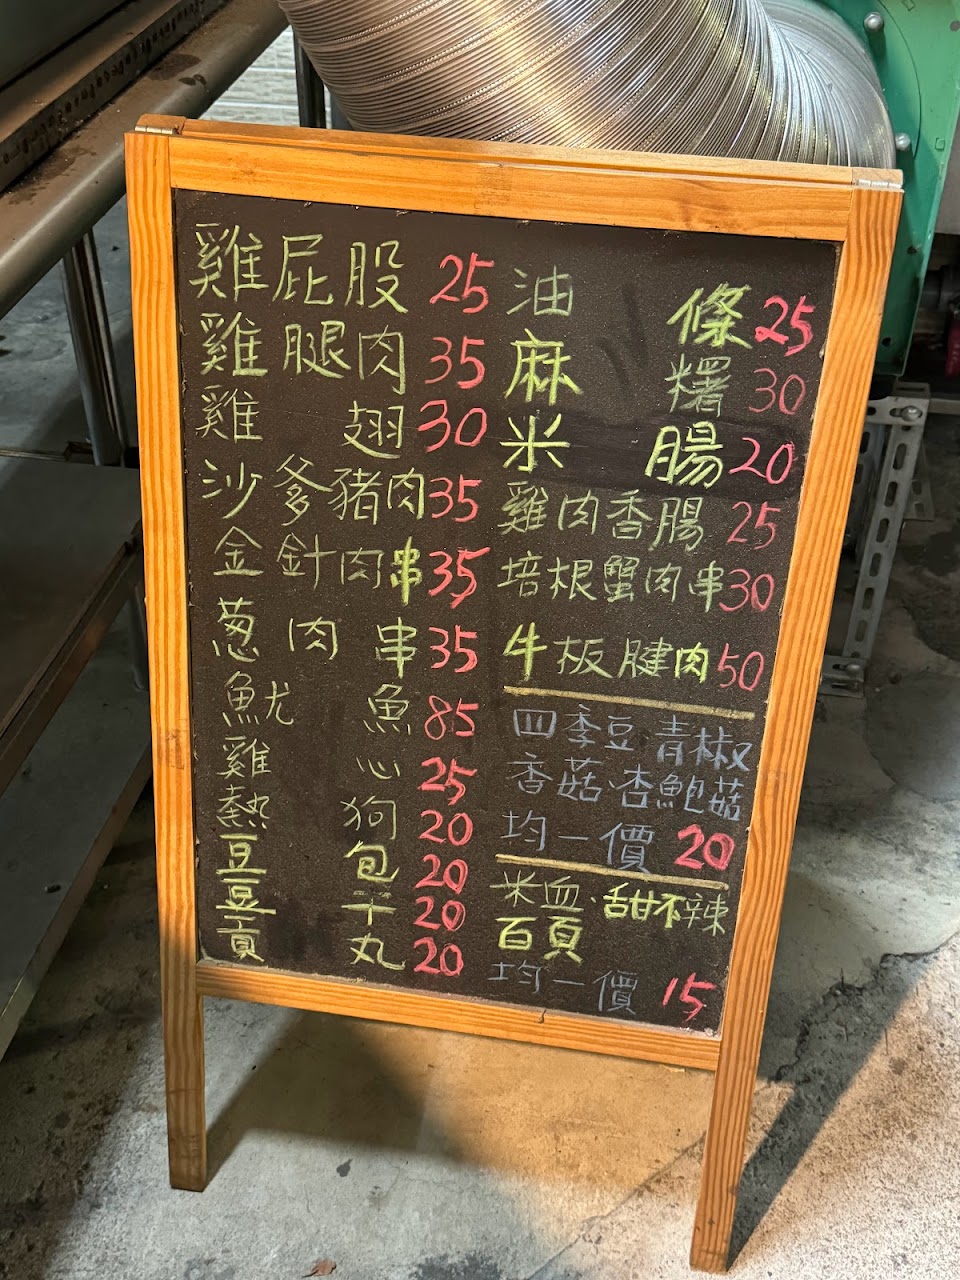 雞屁股 25
雞腿肉 35
雞翅 30
沙爹豬肉 35
金針肉串 35
蔥肉串 35
魷魚 85
雞心 25
熱狗 20
豆包 20
豆干 20
貢丸 20
油條 25
麻糬 30
米腸 20
雞肉香腸 25
培根蟹肉串 30
牛板腱肉 50
四季豆 青椒
香菇·杏鮑菇
均一價 20
米血·甜不辣
百頁
均一價 15